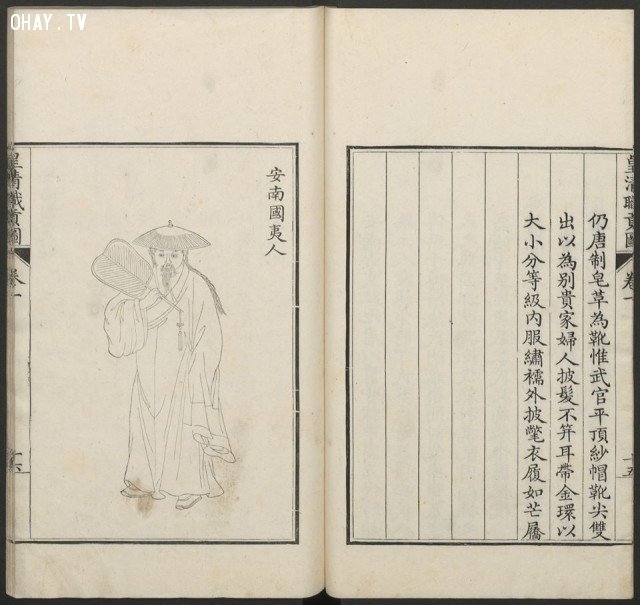 OHAY.TV
皇清職貢圖
卷一
十五
仍唐制皂草為靴惟武官平頂紗帽靴尖雙
出以為別貴家婦人披髮不笄耳帶金環以
大小分等級內服繡襦外披氅衣履如芒屩
安南國夷人
皇清職貢圖
卷一
十六